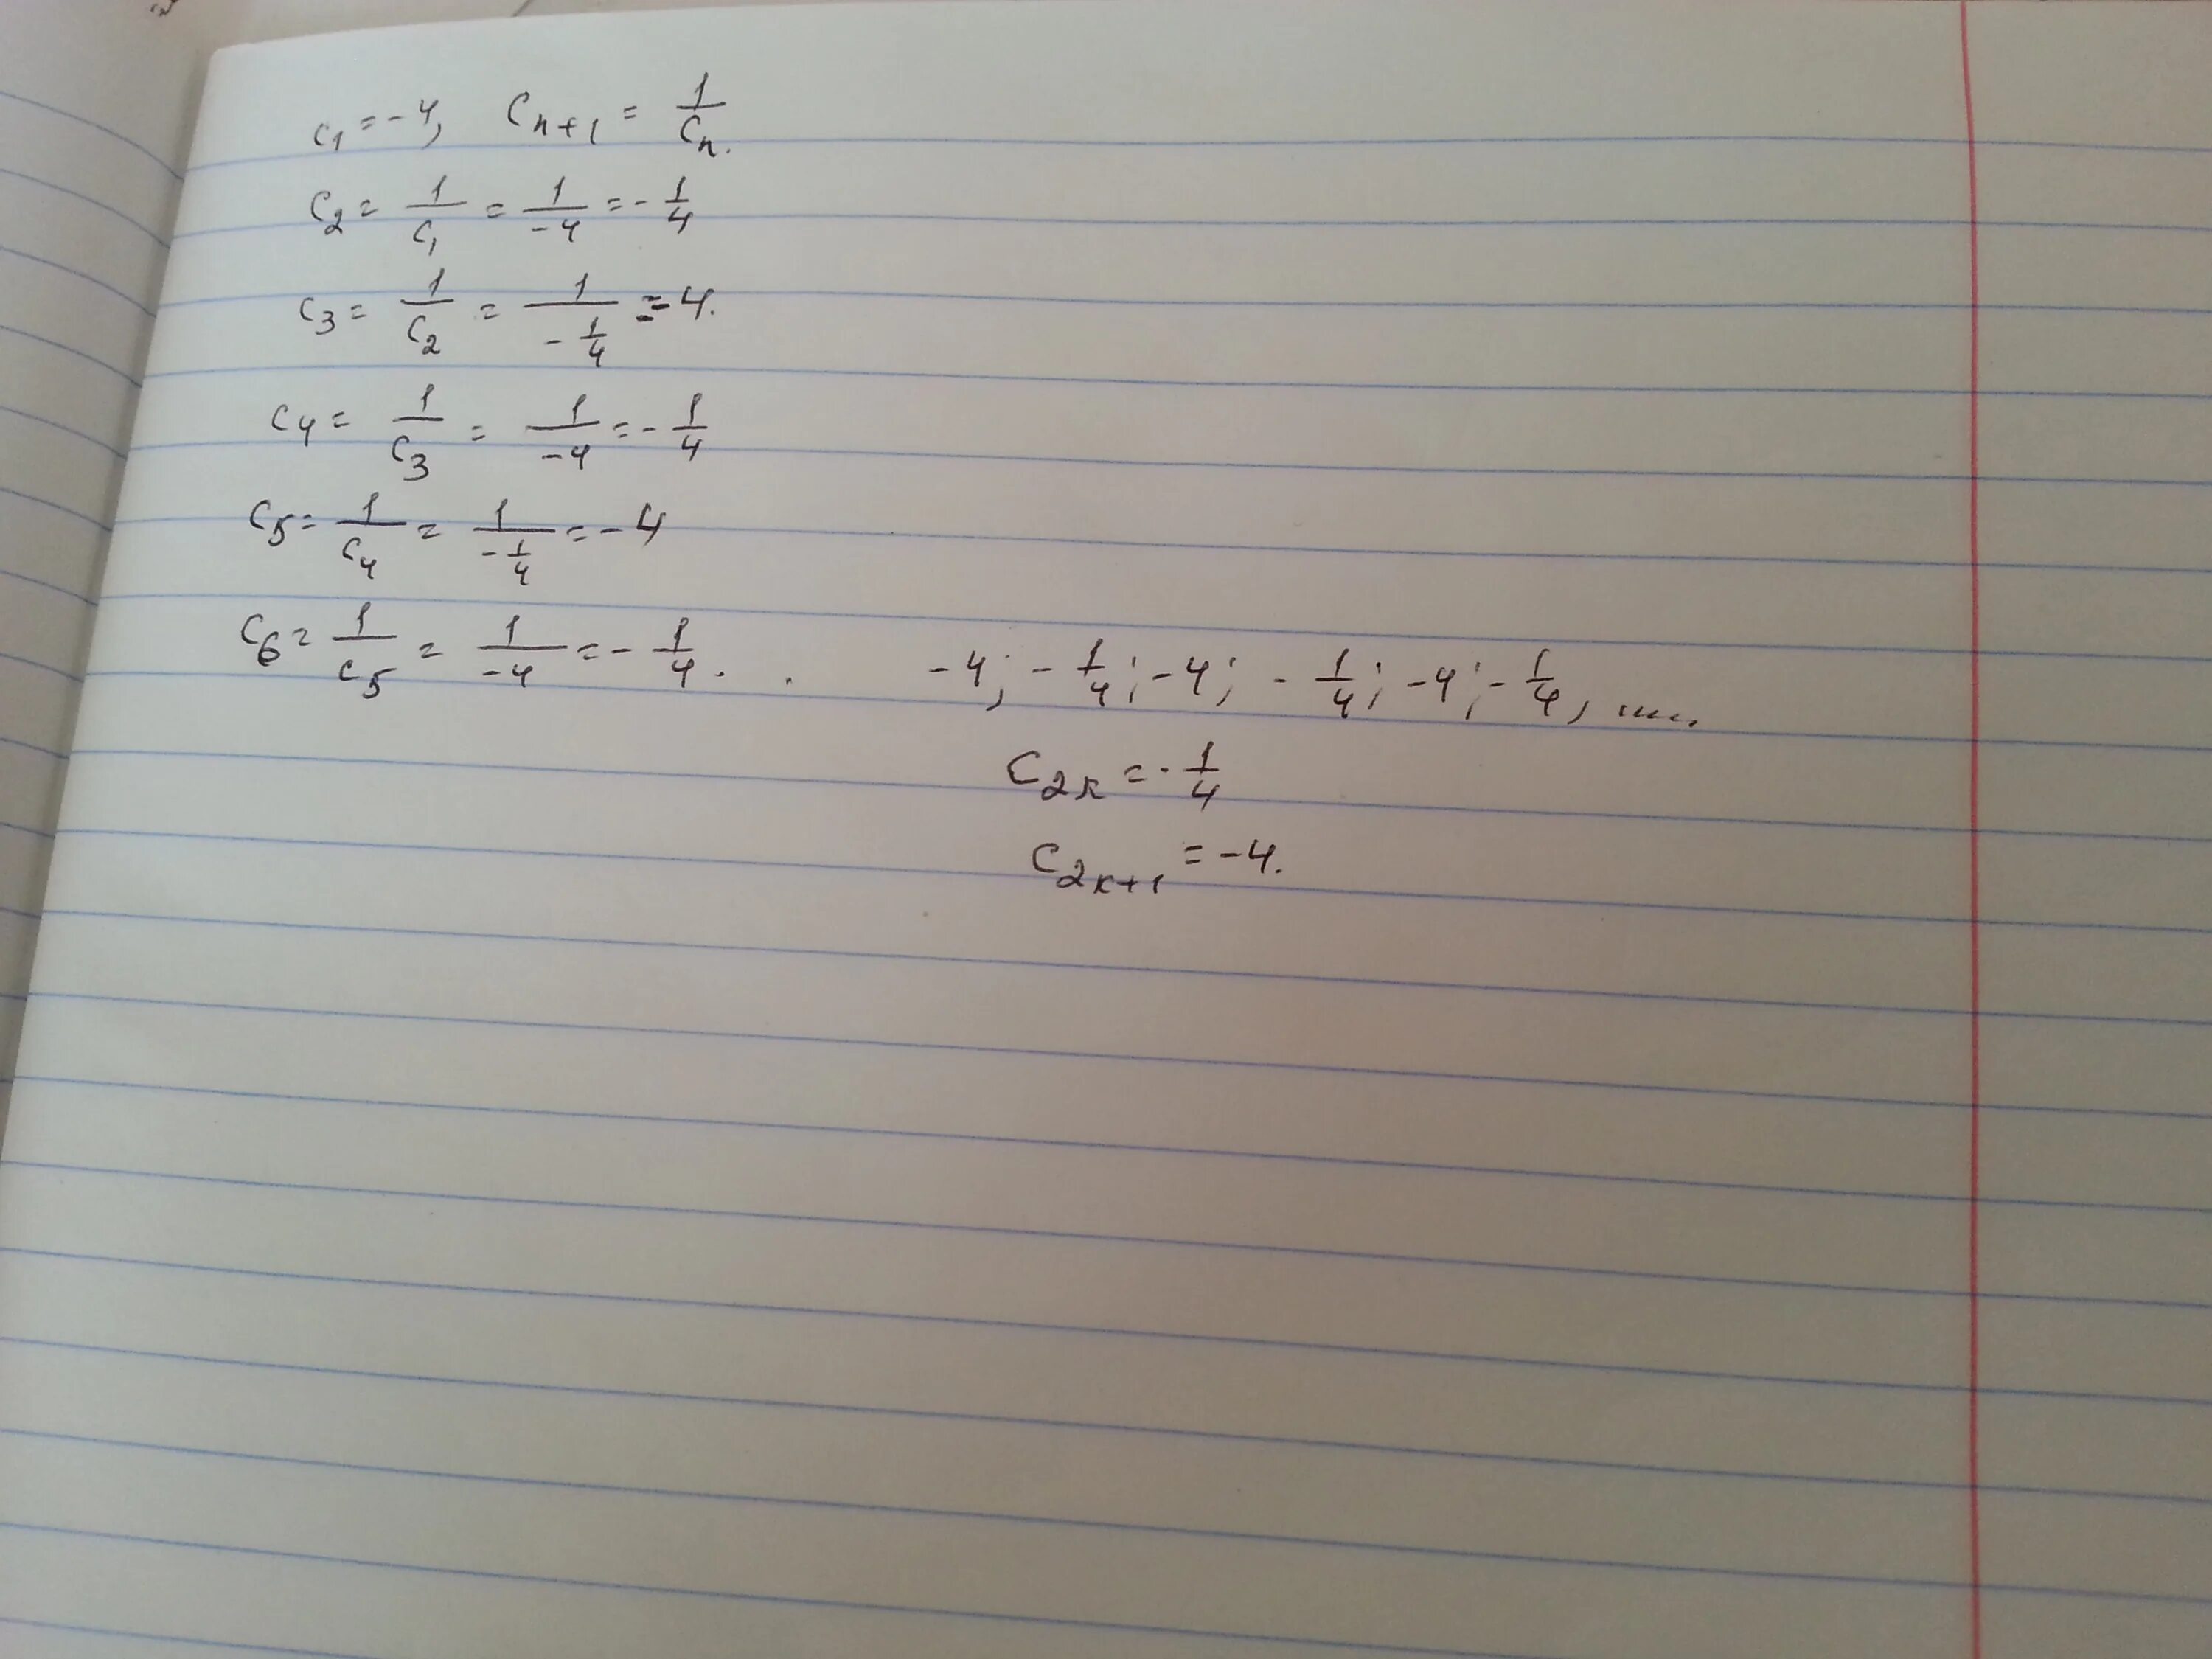 c₁ = -4, Cₙ₊₁ = 1/Cₙ.
C₂ = 1/C₁ = 1/-4 = -1/4
C₃ = 1/C₂ = 1/(-1/4) = -4.
C₄ = 1/C₃ = 1/-4 = -1/4
C₅ = 1/C₄ = 1/(-1/4) = -4
C₆ = 1/C₅ = 1/-4 = -1/4. . -4; -1/4; -4; -1/4; -4; -1/4, .....
C₂ₖ = -1/4
C₂ₖ₊₁ = -4.